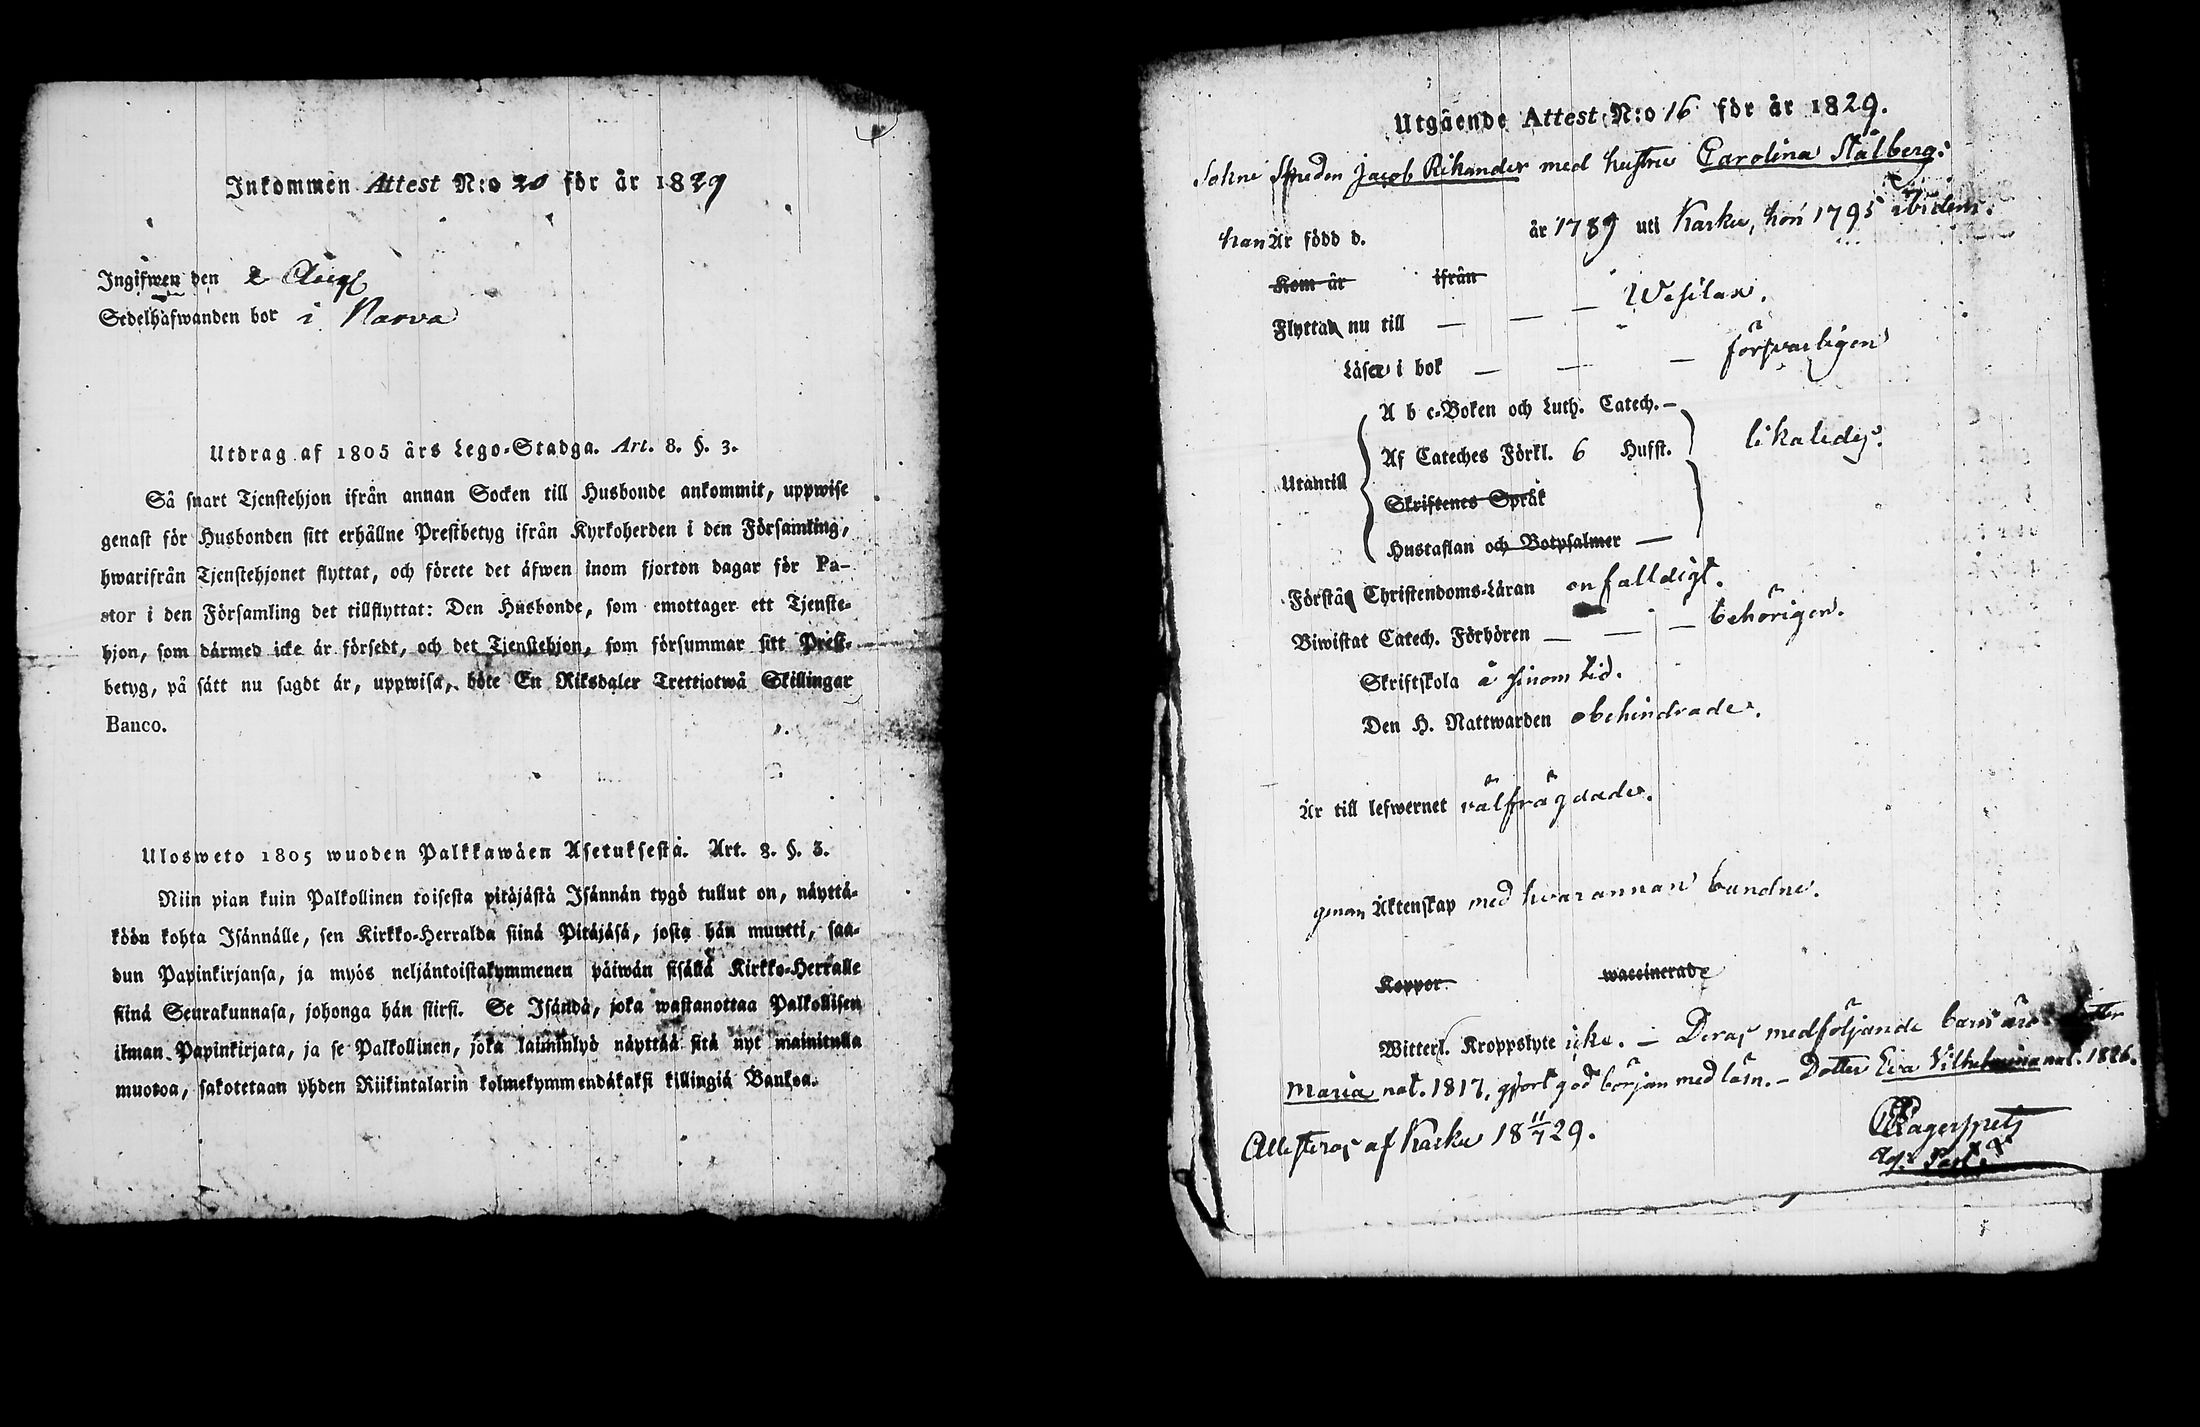 Inkommen Attest N:o 20 för år 1829
Ingifwen den 2 Aug
Sedelhafwanden bor i Narva
Utdrag af 1805 års Lego-Stadga. Art. 8. §. 3.
Så snart Tjenstehjon ifrån annan Socken till Husbonde ankommit, uppwise
genast för Husbonden sitt erhållne Prestbetyg ifrån Kyrkoherden i den Församling,
hwarifrån Tjenstehjonet flyttat, och förete det äfwen inom fjorton dagar för Pa-
stor i den Församling det tillflyttat: Den Husbonde, som emottager ett Tjenste-
hjon, som därmed icke är försedt, och det Tjenstehjon, som försummar sitt Prest-
betyg, på sätt nu sagdt är, uppwisa, böte En Riksdaler Trettiotwå Skillingar
Banco.
Ulosweto 1805 wuoden Palkkawäen Asetuksesta. Art. 8. §. 3.
Niin pian kuin Palkollinen toisesta pitäjästä Isännän tygö tullut on, näyttä-
köön kohta Isännälle, sen Kirkko-Herralda siinä Pitäjäsä, josta hän muutti, saa-
dun Papinkirjansa, ja myös neljäntoistakymmenen päiwän sisällä Kirkko-Herralle
siinä Seurakunnasa, johonga hän siirsi. Se Isändä, joka wastanottaa Palkollisen
ilman Papinkirjata, ja se Palkollinen, joka laiminlyö näyttää sitä nyt mainitulla
muotoa, sakotetaan yhden Riikintalarin kolmekymmendäkaksi killingiä Bankoa.
Utgående Attest N:o 16 för år 1829.
Sokne Smeden Jacob Rikander med hustru Carolina Stålberg.
han Är född d. år 1789 uti Karku, hon 1795 ibidem.
Kom år ifrån
Flyttar nu till — — — Wesilax.
Läser i bok — — — försvarligen
A b c-Boken och Luth. Catech. —
Af Cateches Förkl. 6 Hufst. likaledes.
Utantill
Skriftenes Språk
Hustaflan och Botpsalmer —
Förstå Christendoms-Läran enfalldigt.
Biwistat Catech. Förhören — — — behörigen.
Skriftskola å sinom tid.
Den H. Nattwarden obehindrade.
Är till lefwernet välfrägdade.
genom Äktenskap med hvarannan bundne.
Koppor waccinerade
Witterl. Kroppslyte icke. — Deras medföljande barn äro
Maria nat. 1817, gjort god början med läsn. — Dotter Eva Vilhelmina nat. 1826.
Attesteras af Karku 18 11/7 29.